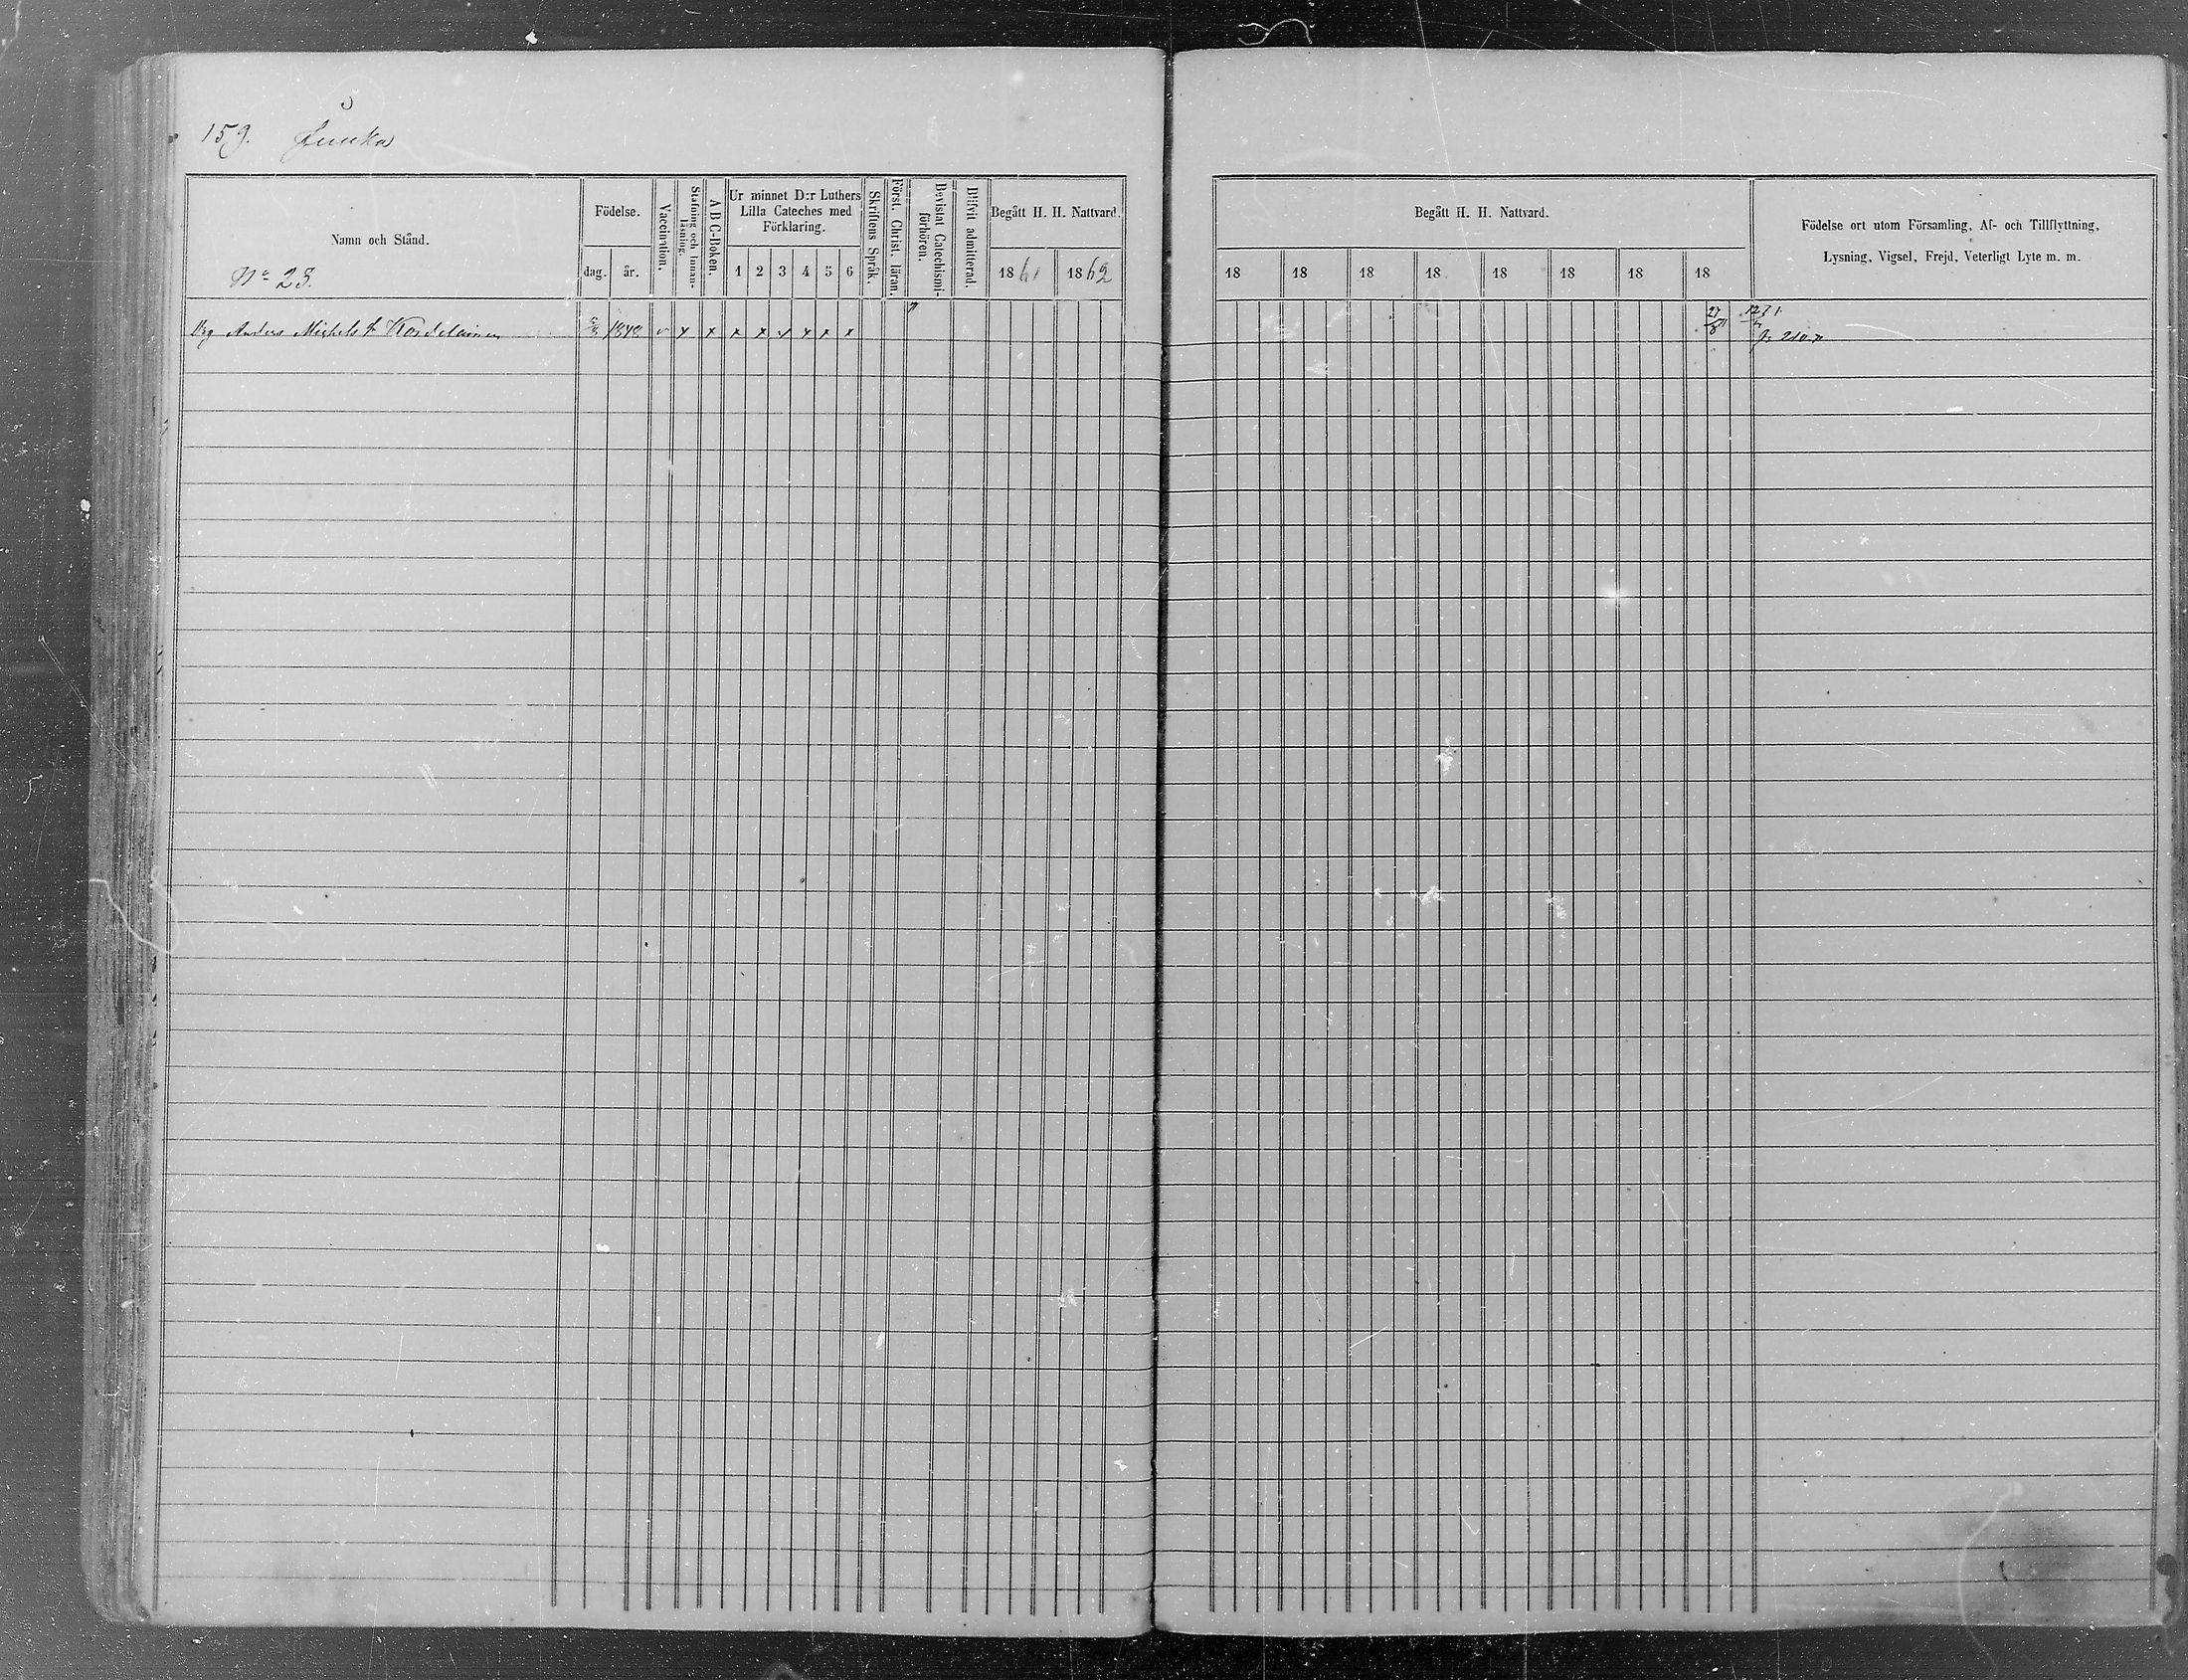 159. Junka
Namn och Stånd.
Nº 28.
Födelse.
dag. år.
Vaccination.
Stafning och Innanläsning.
A B C-Boken.
Ur minnet D:r Luthers
Lilla Cateches med
Förklaring.
1 2 3 4 5 6
Skriftens Språk.
Först. Christ. läran.
Bevistat Catechismi-
förhören.
Blifvit admitterad.
Begått H. H. Nattvard.
1861 1862
Drg Anders Michels s. Kordelainen 1848 v x x x x v x x x
Begått H. H. Nattvard.
18 18 18 18 18 18 18 18
Födelse ort utom Församling, Af- och Tillflyttning,
Lysning, Vigsel, Frejd, Veterligt Lyte m. m.
27/8
p. 210